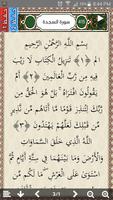 8:44 PM
سورة السجدة
بِسْمِ اللَّهِ الرَّحْمَٰنِ الرَّحِيمِ
الم ﴿١﴾ تَنزِيلُ الْكِتَابِ لَا
رَيْبَ فِيهِ مِن رَّبِّ الْعَالَمِينَ ﴿٢﴾ أَمْ
يَقُولُونَ افْتَرَاهُ بَلْ هُوَ الْحَقُّ مِن
رَّبِّكَ لِتُنذِرَ قَوْمًا مَّا أَتَاهُم مِّن
نَّذِيرٍ مِّن قَبْلِكَ لَعَلَّهُمْ يَهْتَدُونَ
﴿٣﴾ اللَّهُ الَّذِي خَلَقَ السَّمَاوَاتِ
وَالْأَرْضَ وَمَا بَيْنَهُمَا فِي سِتَّةِ أَيَّامٍ
3/1